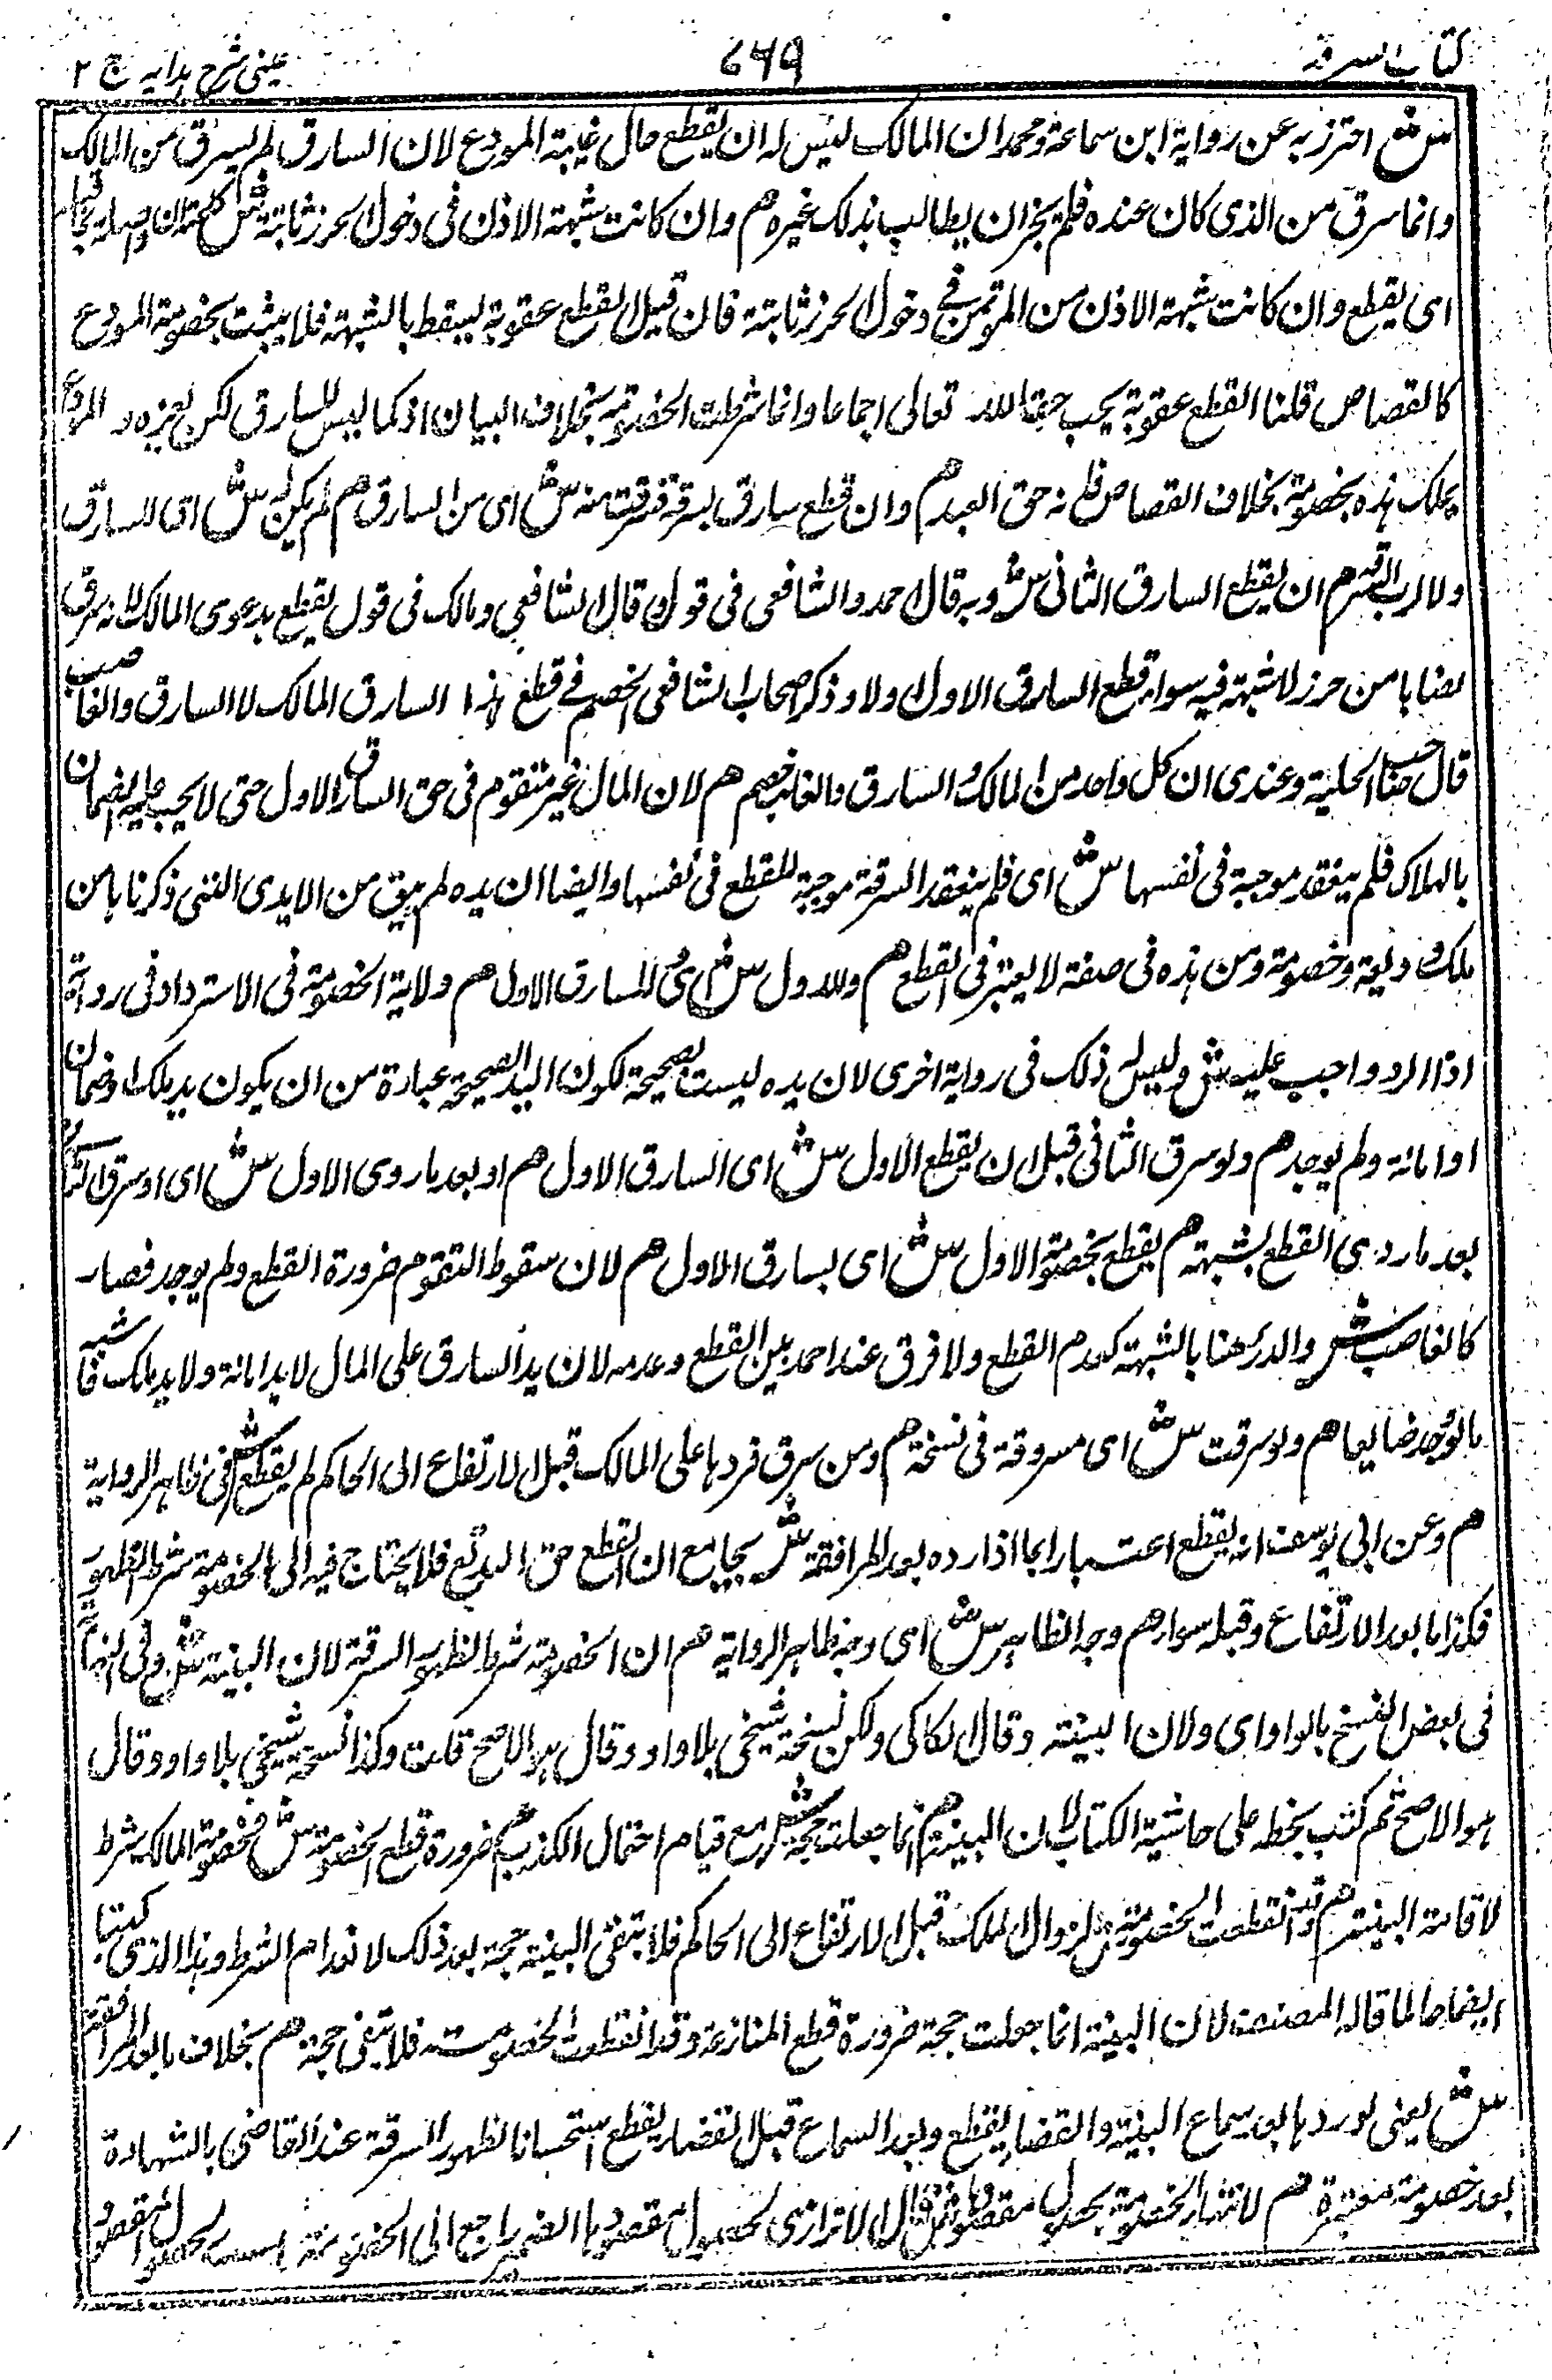 كتاب السرقة
٧٦٩
عينى شرح هدايه ج ٢
ش احترز به عن رواية ابن سماعة ومحمد ان المالك ليس له ان يقطع حال غيبة المودع لان السارق لم يسرق من المالك
وانما سرق من الذى كان عنده فلم يجز ان يطالب بذلك غيره هم وان كانت شبهة الاذن فى دخول الحرز ثابتة ش كلمة ان واصلة بما قبلها
اى يقطع وان كانت شبهة الاذن من المؤتمن فى دخول الحرز ثابتة فان قيل القطع عقوبة ليسقط بالشبهة فلا يثبت بخصومة المودع
كالقصاص قلنا القطع عقوبة يجب حقا لله تعالى اجماعا وانما شرطت الخصومة بخلاف البيان اذ كما ليس للسارق لكن لغيره و المودع
يملك هذه بخصومة بخلاف القصاص فانه حق العبد هم وان قطع سارق بسرقة فسرقت منه ش اى من السارق هم لم يكن له ش اى للسارق
ولا لرب السرقة هم ان يقطع السارق الثانى ش وبه قال احمد والشافعى فى قول وقال الشافعى ومالك فى قول يقطع بدعوى المالك لانه سرق
نصابا من حرز لا شبهة فيه سواء قطع السارق الاول اولا وذكر اصحاب الشافعى الخصم فى قطع هذا السارق المالك لا السارق والغاصب
قال صاحب الحلية وعندى ان كل واحد من المالك والسارق والغاصب خصم هم لان المال غير متقوم فى حق السارق الاول حتى لا يجب عليه الضمان
بالهلاك فلم ينعقد موجبة فى نفسها ش اى فلم ينعقد السرقة موجبة للقطع فى نفسها وايضا ان يده لم يبق من الايدى التى ذكرناها من
ملك وديعة وخصومة ومن هذه فى صفة لا يعتبر فى القطع هم وللاول ش اى للسارق الاول هم ولاية الخصومة فى الاسترداد فى رواية
اذا الرد واجب عليه ش وليس له ذلك فى رواية اخرى لان يده ليست بصحيحة لكون اليد الصحيحة عبارة من ان يكون يد ملك او ضمان
او امانة ولم يوجد هم ولو سرق الثانى قبل ان يقطع الاول ش اى السارق الاول هم او بعد ما روى الاول ش اى او سرق الثانى
بعد ما ردى القطع بشبهة هم يقطع بخصومة الاول ش اى بسارق الاول هم لان سقوط التقوم ضرورة القطع ولم يوجد فصار
كالغاصب ش والدرء هنا بالشبهة كعدم القطع ولا فرق عند احمد بين القطع وعدمه لان يد السارق على المال لا يد امانة ولا يد ملك فاشبه
ما لو وجد ضايعا هم ولو سرقت ش اى مسروقة فى نسخة هم ومن سرق فردها على المالك قبل الارتفاع الى الحاكم لم يقطع ش فى ظاهر الرواية
هم وعن ابى يوسف انه يقطع اعتبارا بما اذا رده بعد المرافعة ش بجامع ان القطع حق الله تع فلا يحتاج فيه الى الخصومة شرط الظهور
فكذا ما بعد الارتفاع وقبله سواء هم وجه الظاهر ش اى وجه ظاهر الرواية هم ان الخصومة شرط لظهور السرقة لان البينة ش وفى النهاية
فى بعض النسخ بالواو اى ولان البينة وقال الكاكى ولكن نسخة شيخى بلا واو وقال هو الاصح قلت وكذا نسخة شيخى بلا واو وقال
هو الاصح ثم كتب بخطه على حاشية الكتاب لان البينة هم انما جعلت حجة ش مع قيام احتمال الكذب هم ضرورة قطع الخصومة ش فخصومة المالك شرط
لاقامة البينة هم وقد انقطعت الخصومة ش لزوال الملك قبل الارتفاع الى الحاكم فلا تبقى البينة حجة بعد ذلك لانعدام الشرط وهذا الذى كتبنا
ايضا حالما قاله المصنف لان البينة انما جعلت حجة ضرورة قطع المنازعة وقد انقطعت الخصومة فلا تبقى حجة هم بخلاف ما بعد المرافعة
ش يعنى لو ردها بعد سماع البينة والقضاء يقطع وبعد السماع قبل القضاء يقطع استحسانا لظهور السرقة عند القاضى بالشهادة
بعد خصومة معتبرة هم لانتهاء الخصومة بحصول مقصودها ش قال الاترازى لحصول مقصودها الضمير راجع الى الخصومة لحصول المقصود